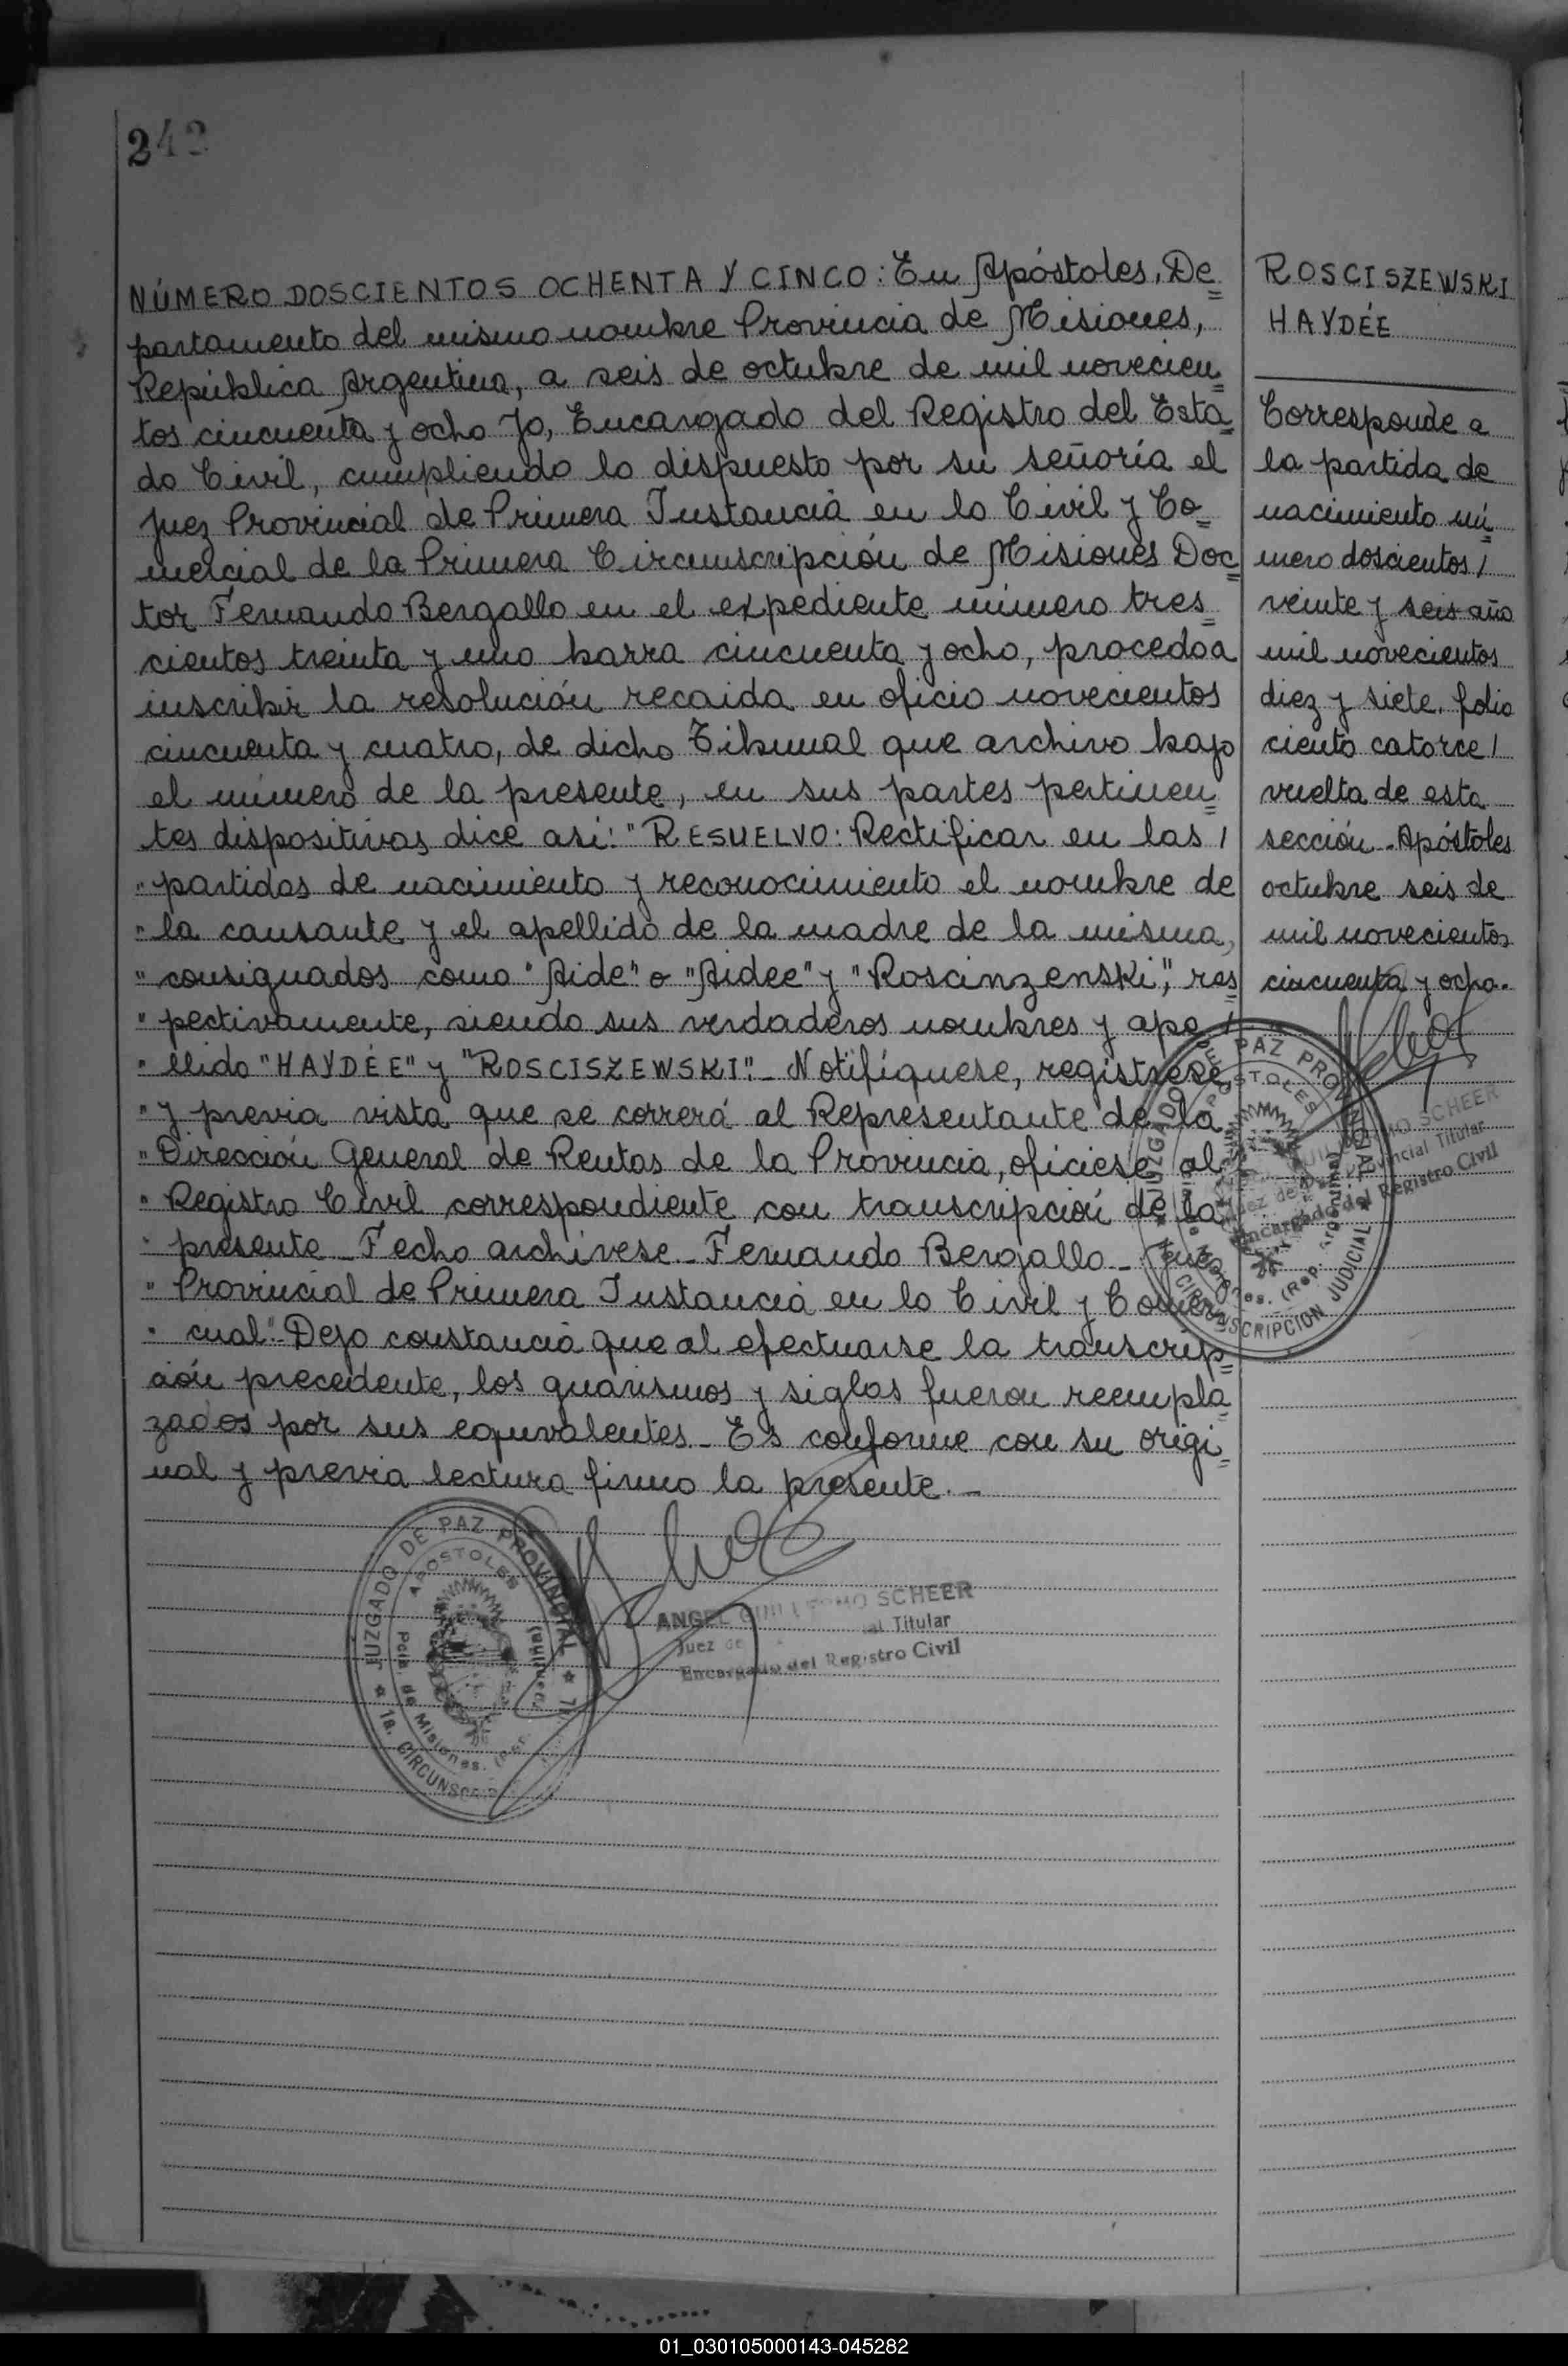 242
NÚMERO DOSCIENTOS OCHENTA Y CINCO: En Apóstoles, De=
partamento del mismo nombre Provincia de Misiones,
República Argentina, a seis de octubre de mil novecien=
tos cincuenta y ocho Yo, Encargado del Registro del Esta=
do Civil, cumpliendo lo dispuesto por su señoría el
Juez Provincial de Primera Instancia en lo Civil y Co=
mercial de la Primera Circunscripción de Misiones Doc=
tor Fernando Bergallo en el expediente número tres=
cientos treinta y uno barra cincuenta y ocho, procedo a
inscribir la resolución recaida en oficio novecientos
cincuenta y cuatro, de dicho Tribunal que archivo bajo
el número de la presente, en sus partes pertinen=
tes dispositivas dice asi: "RESUELVO: Rectificar en las /
"partidas de nacimiento y reconocimiento el nombre de
"la causante y el apellido de la madre de la misma,
"consignados como "Aide" o "Aidee" y "Roscinzenski", res=
"pectivamente, siendo sus verdaderos nombres y ape /
"llido "HAYDÉE" y "ROSCISZEWSKI".- Notifíquese, regístrese
"y previa vista que se correrá al Representante de la
"Dirección General de Rentas de la Provincia, ofíciese al
"Registro Civil correspondiente con transcripción de la
"presente - Fecho archívese - Fernando Bergallo - Juez
"Provincial de Primera Instancia en lo Civil y Comer=
"cial".- Dejo constancia que al efectuarse la transcrip=
ción precedente, los guarismos y siglas fueron reempla=
zados por sus equivalentes.- Es conforme con su origi=
nal y previa lectura firmo la presente.-
JUZGADO DE PAZ PROVINCIAL
APOSTOLES
Pcia. de Misiones.
1a. CIRCUNSCRIP
ANGEL GUILLERMO SCHEER
Juez de Titular
Encargado del Registro Civil
ROSCISZEWSKI
HAYDÉE
Corresponde a
la partida de
nacimiento nú=
mero doscientos /
veinte y seis año
mil novecientos
diez y siete, folio
ciento catorce /
vuelta de esta
sección - Apóstoles
octubre seis de
mil novecientos
cincuenta y ocho.
JUZGADO DE PAZ PROVINCIAL
APOSTOLES
Misiones. (Rep. Argentina)
1a. CIRCUNSCRIPCION JUDICIAL
GUILLERMO SCHEER
Juez de Paz Provincial Titular
Encargado del Registro Civil
01_030105000143-045282